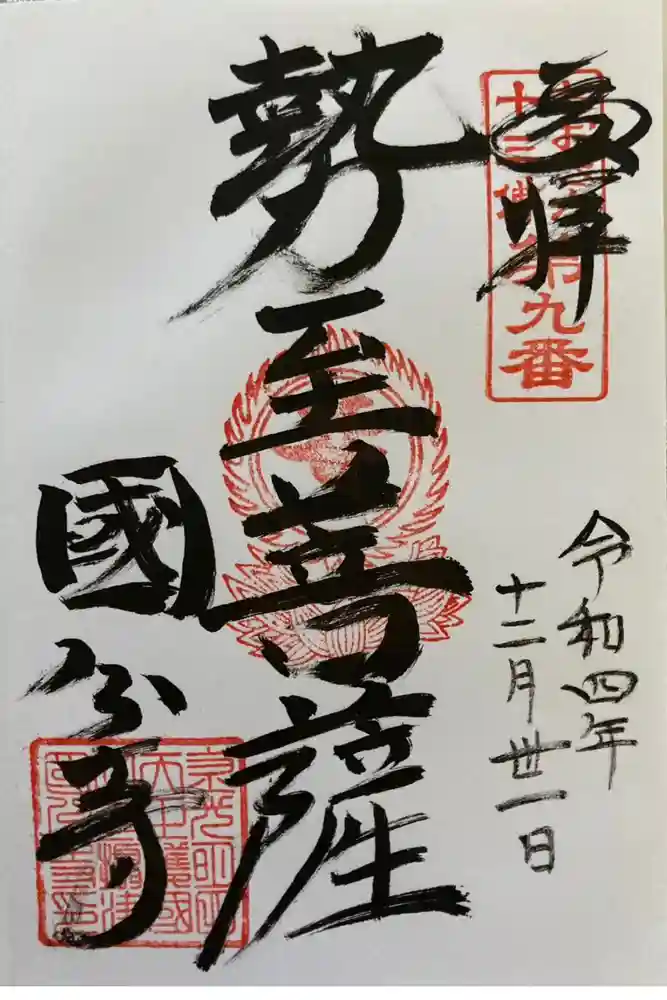 奉拝
十三佛第九番
令和四年
十二月丗一日
勢至菩薩
國分寺